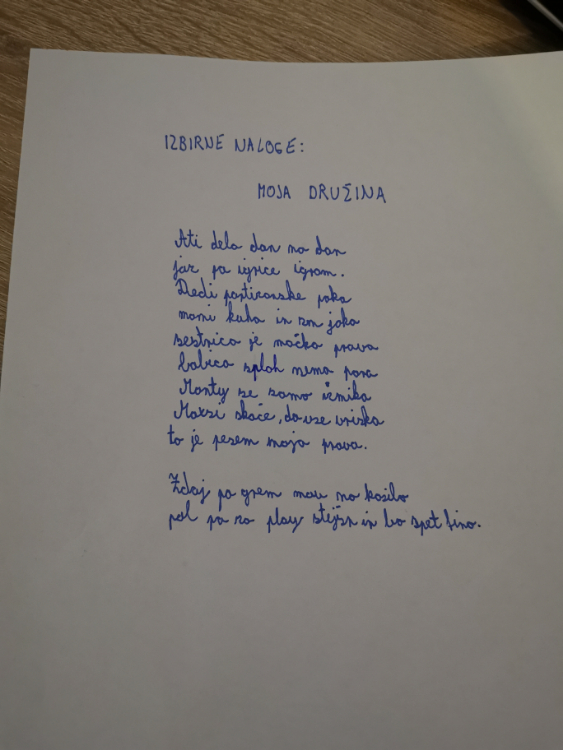 IZBIRNE NALOGE:
MOJA DRUŽINA
Ati dela dan na dan
jaz pa igrice igram.
Dedi partizanske poka
mami kuha in zm joka
sestrica je mačka prava
babica sploh nema para
Monty se samo izmika
Maxsi skače, da vse vriska
to je pesem moja prava.
Zdaj pa grem mau na kosilo
pol pa na play stejšn in bo spet fino.